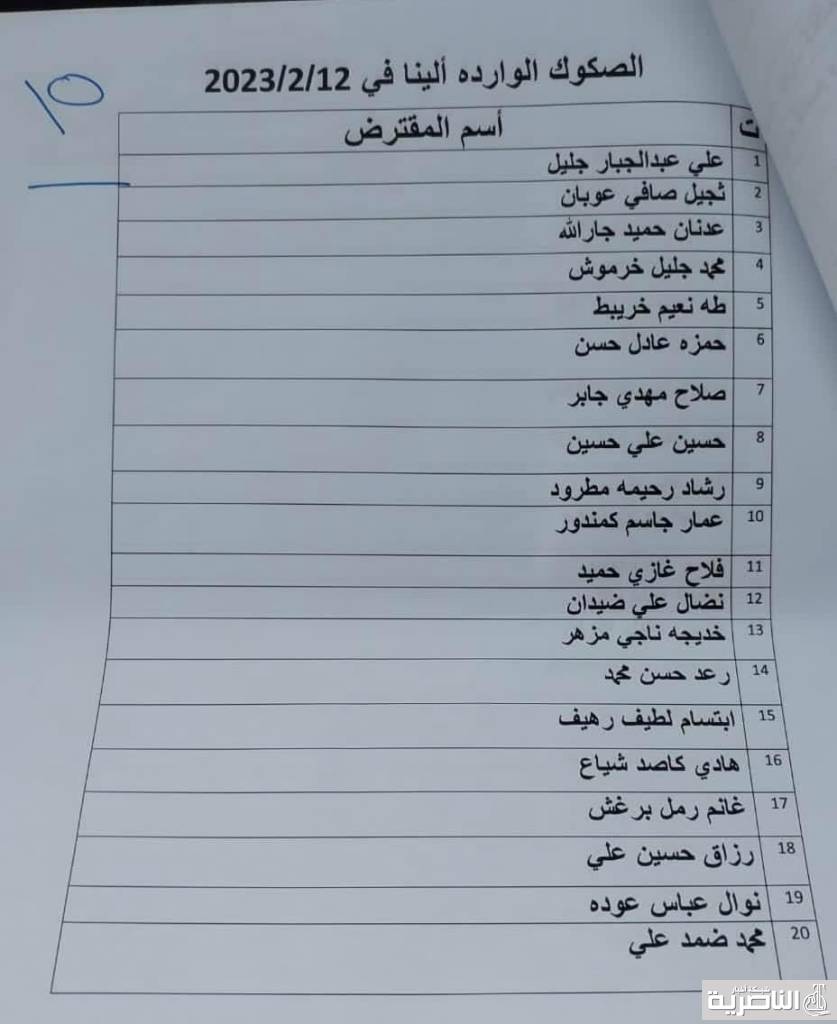 الصكوك الوارده ألينا في 2023/2/12
10
ت أسم المقترض
1 علي عبدالجبار جليل
2 ثجيل صافي عوبان
3 عدنان حميد جارالله
4 محمد جليل خرموش
5 طه نعيم خريبط
6 حمزه عادل حسن
7 صلاح مهدي جابر
8 حسين علي حسين
9 رشاد رحيمه مطرود
10 عمار جاسم كمندور
11 فلاح غازي حميد
12 نضال علي ضيدان
13 خديجه ناجي مزهر
14 رعد حسن محمد
15 ابتسام لطيف رهيف
16 هادي كاصد شياع
17 غانم رمل برغش
18 رزاق حسين علي
19 نوال عباس عوده
20 محمد ضمد علي
شبكة اخبار
الناصرية